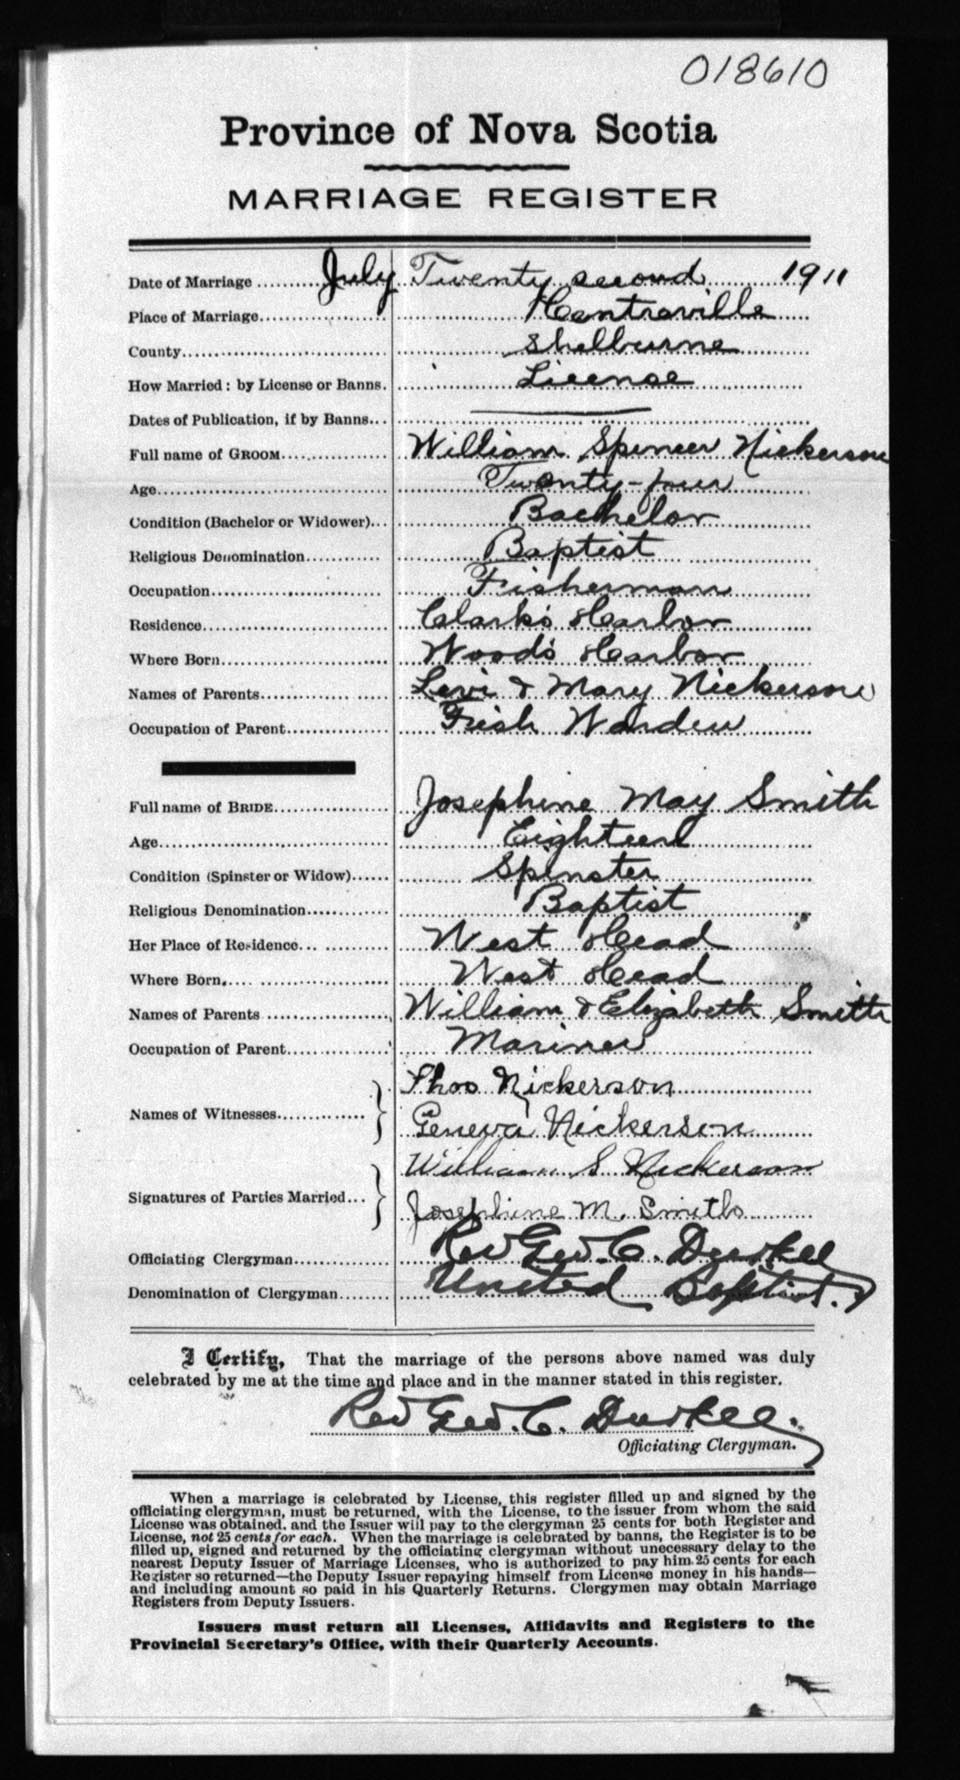 018610
Province of Nova Scotia
MARRIAGE REGISTER
Date of Marriage July Twenty second 1911
Place of Marriage Centraville
County Shelburne
How Married: by License or Banns. License
Dates of Publication, if by Banns
Full name of GROOM William Spencer Nickerson
Age Twenty-four
Condition (Bachelor or Widower) Bachelor
Religious Denomination Baptist
Occupation Fisherman
Residence Clark's Harbor
Where Born Wood's Harbor
Names of Parents Levi & Mary Nickerson
Occupation of Parent Fish Warden
Full name of BRIDE Josephine May Smith
Age Eighteen
Condition (Spinster or Widow) Spinster
Religious Denomination Baptist
Her Place of Residence West Head
Where Born West Head
Names of Parents William & Elizabeth Smith
Occupation of Parent Mariner
Thos Nickerson
Names of Witnesses
Geneva Nickerson
William S Nickerson
Signatures of Parties Married
Josephine M. Smith
Officiating Clergyman Rev Geo. C. Durkee
Denomination of Clergyman United Baptist.
I Certify, That the marriage of the persons above named was duly
celebrated by me at the time and place and in the manner stated in this register.
Rev Geo. C. Durkee.
Officiating Clergyman.
When a marriage is celebrated by License, this register filled up and signed by the
officiating clergyman, must be returned, with the License, to the issuer from whom the said
License was obtained. and the Issuer will pay to the clergyman 25 cents for both Register and
License, not 25 cents for each. When the marriage is celebrated by banns, the Register is to be
filled up, signed and returned by the officiating clergyman without unecessary delay to the
nearest Deputy Issuer of Marriage Licenses, who is authorized to pay him 25 cents for each
Register so returned—the Deputy Issuer repaying himself from License money in his hands—
and including amount so paid in his Quarterly Returns. Clergymen may obtain Marriage
Registers from Deputy Issuers.
Issuers must return all Licenses, Affidavits and Registers to the
Provincial Secretary's Office, with their Quarterly Accounts.